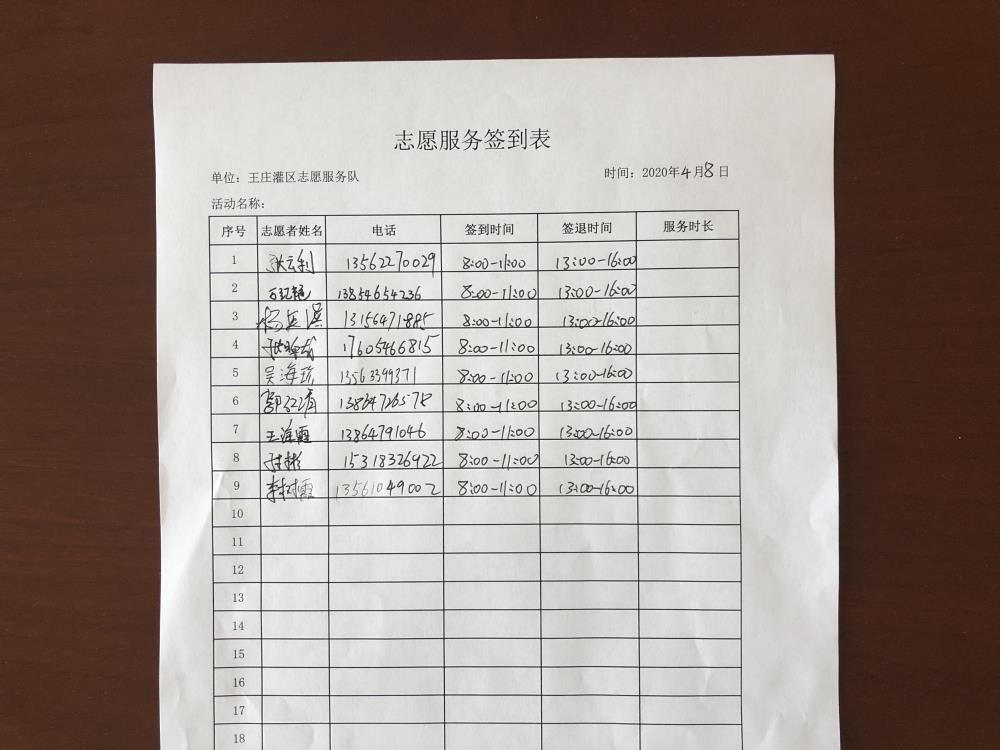 志愿服务签到表
单位：王庄灌区志愿服务队 时间：2020年4月8日
活动名称：
序号 志愿者姓名 电话 签到时间 签退时间 服务时长
1 张云利 13562270029 8:00-11:00 13:00-16:00
2 13854654236 8:00-11:00 13:00-16:00
3 13156471885 8:00-11:00 13:00-16:00
4 17605466815 8:00-11:00 13:00-16:00
5 吴海珍 13563399371 8:00-11:00 13:00-16:00
6 郭红清 8:00-11:00 13:00-16:00
7 王海霞 13864791046 8:00-11:00 13:00-16:00
8 15318326922 8:00-11:00 13:00-16:00
9 李树霞 13561049002 8:00-11:00 13:00-16:00
10
11
12
13
14
15
16
17
18